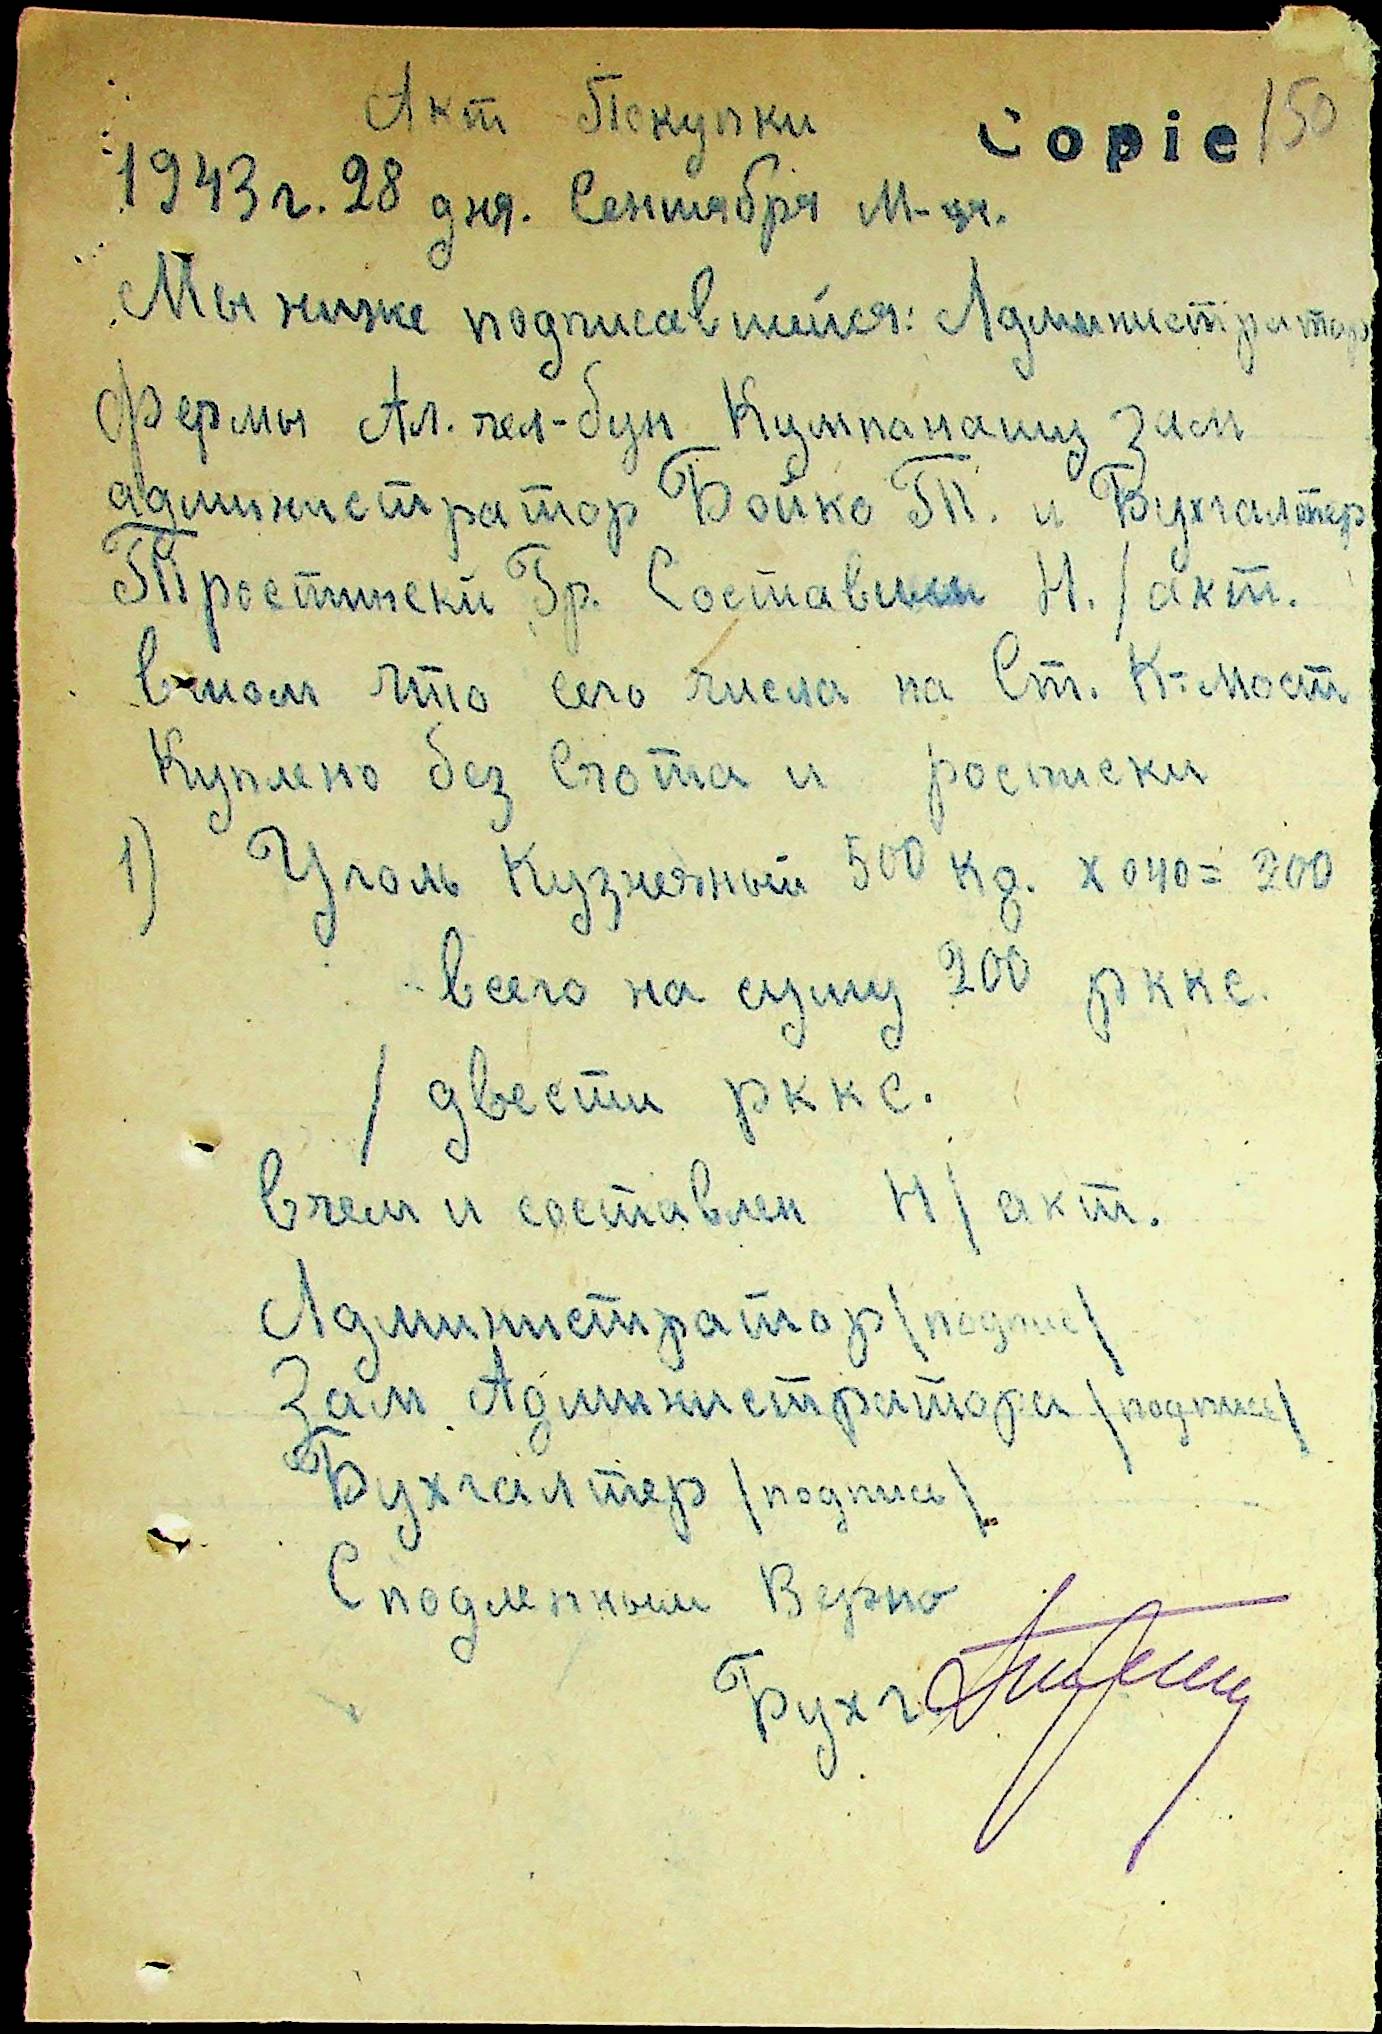 Акт Покупки
Copie 150
1943 г. 28 дня. Сентября М-ця.
Мы ниже подписавшийся: Администратор
фермы Ал. чел-бун Кумпанашу Зам
администратор Бойко П. и Бухгалтер
Тростински Гр. Составили Н./акт.
втом что сего числа на Ст. К-мост
Куплено без Счота и росписки
1) Уголь Кузнечный 500 кg. х 040 = 200
всего на суму 200 рккс.
/ двести рккс.
вчем и составлен Н/акт.
Администратор /подпис/
Зам Администратора /подпись/
Бухгалтер /подпись/.
Сподленным Верно
Бухг.